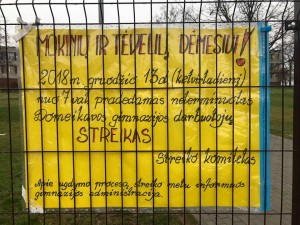 MOKINIŲ IR TĖVELIŲ DĖMESIUI!
2018m. gruodžio 13d. (ketvirtadienį)
nuo 7 val. pradedamas neterminuotas
Domeikavos gimnazijos darbuotojų
STREIKAS
Streiko komitetas
Apie ugdymo procesą streiko metu informuos
gimnazijos administracija.